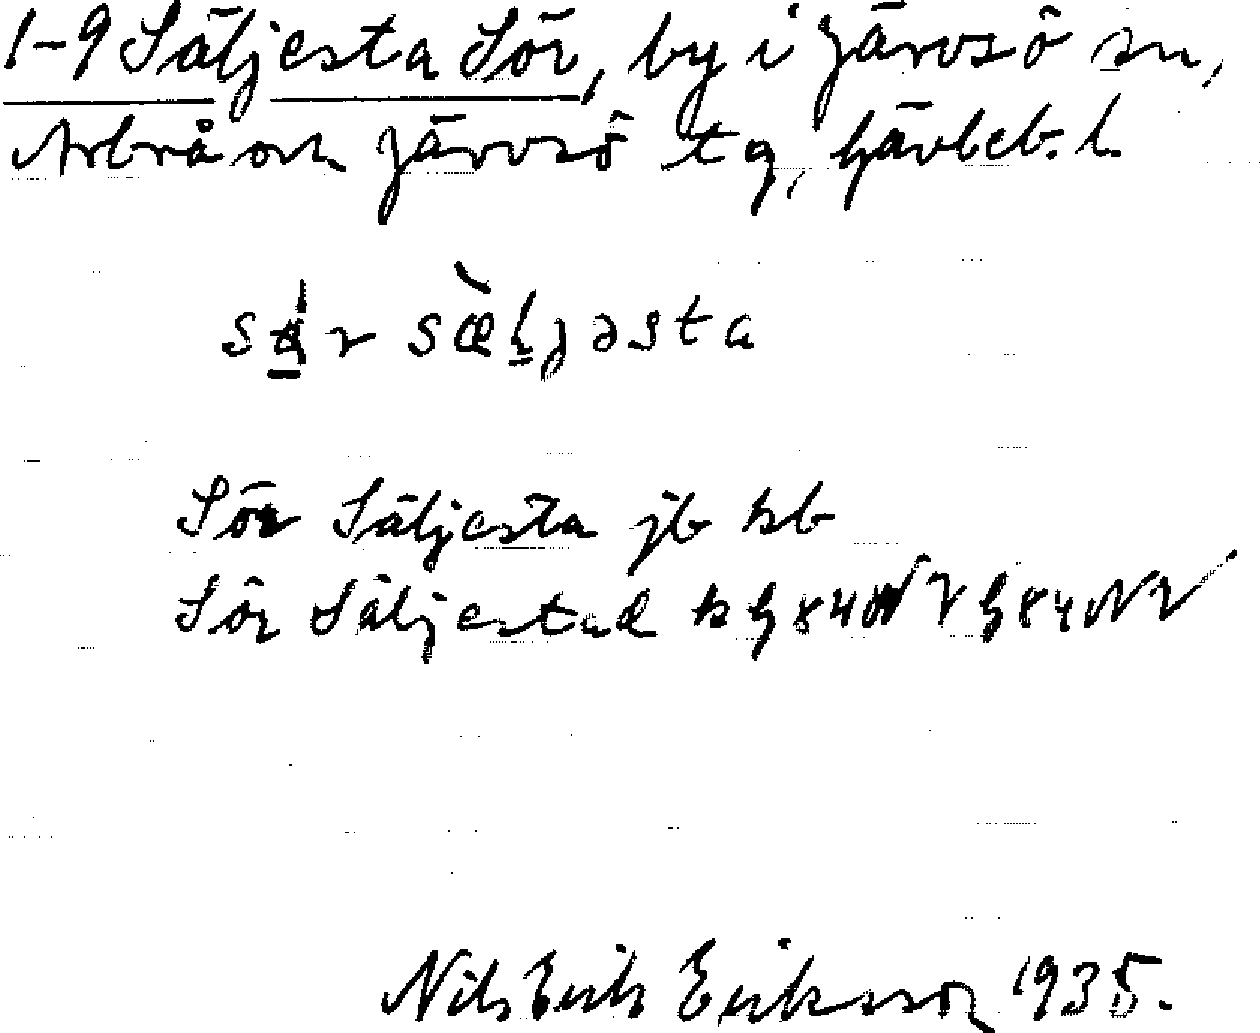 1-9 Säljesta Sör, by i Järvsö sn,
Arbrå och Järvsö tg, Gävleb. l.
sær sæ̀ljəsta
Sör Säljesta jb kb
Sör Säljestad k G 84 NV G 84 NV
Nils Erik Eriksson 1935.